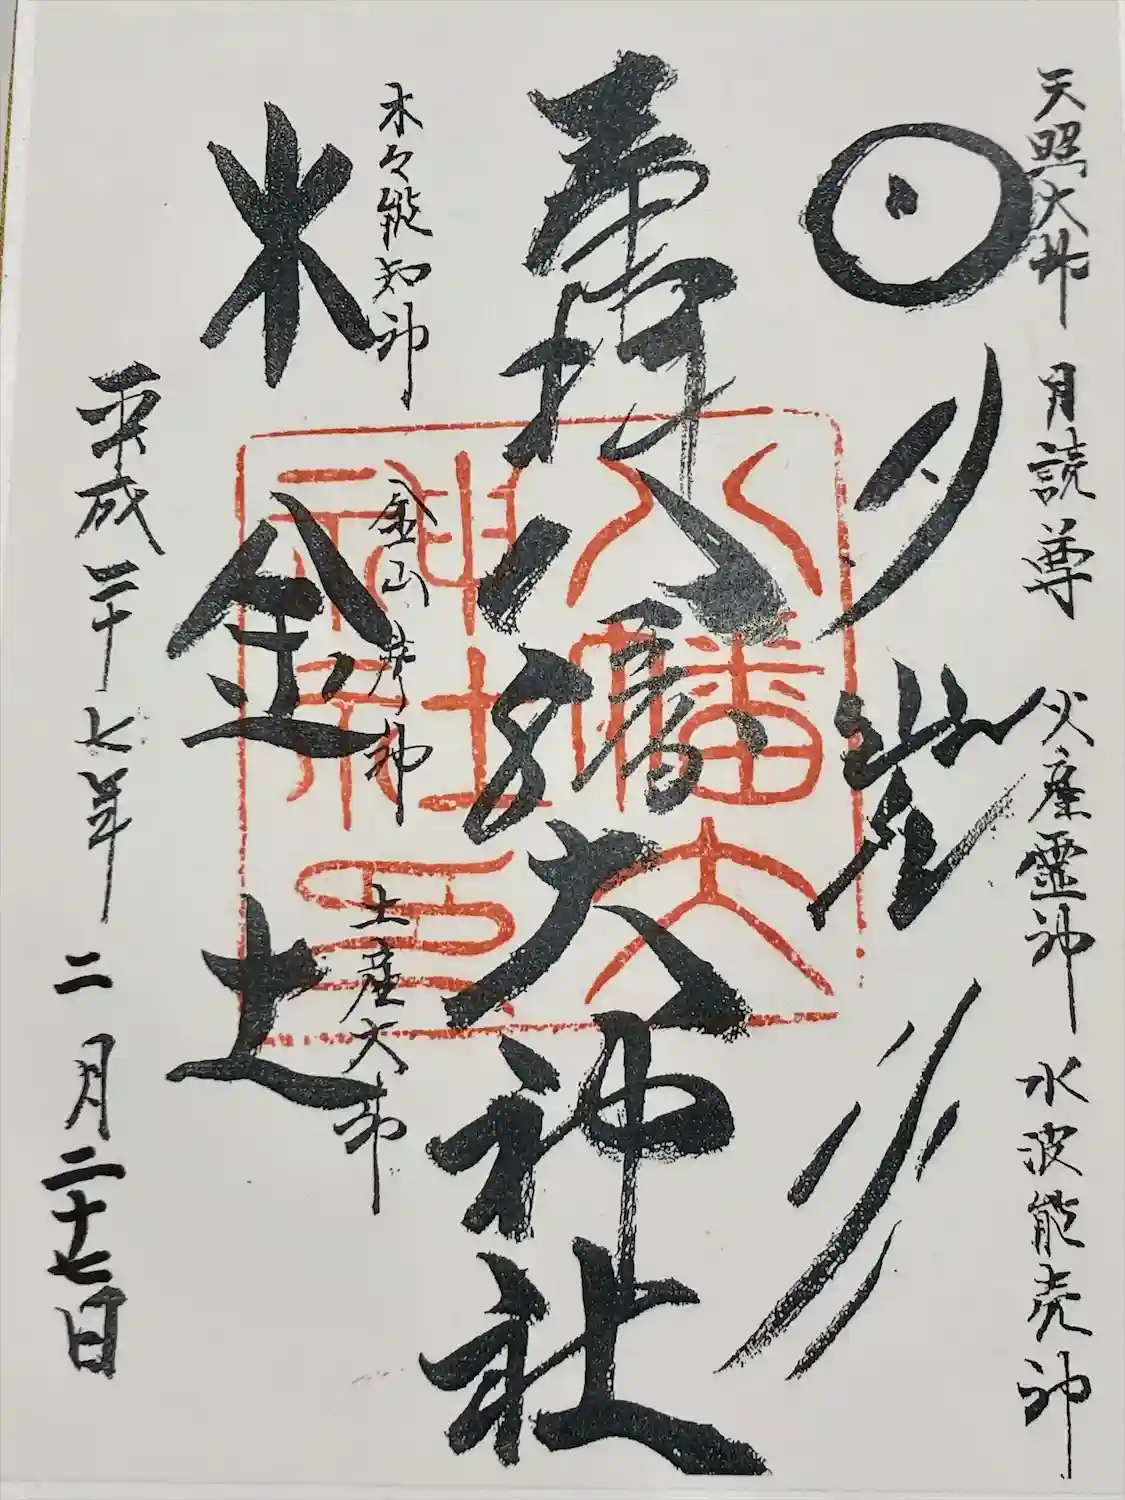 天照大神 月読尊 火産霊神 水波能売神
日 月 火 水
奉拝 八幡大神社
木々能知神 金山彦神 土産大神
木 金 土
平成二十七年 二月二十七日
八幡大神社之印